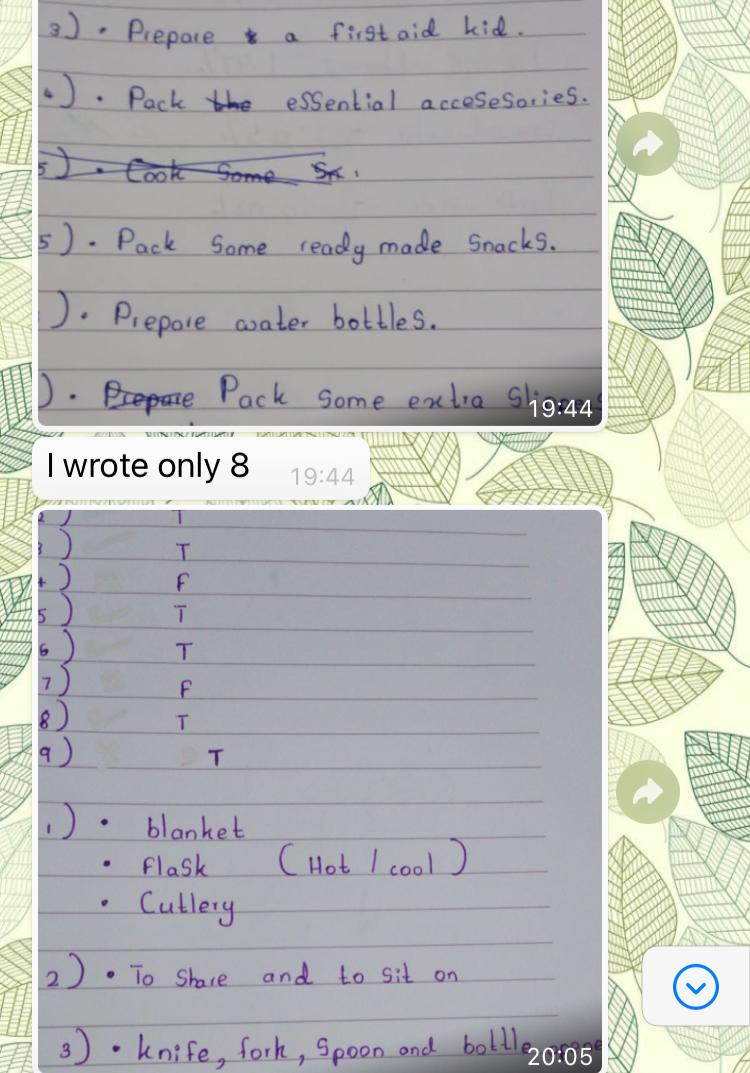 3) • Prepare a first aid kid.
4) • Pack the essential accesesories.
5) • Cook Some
5) • Pack Some ready made Snacks.
) • Prepare water bottles.
) • Prepare Pack Some extra
19:44
I wrote only 8
19:44
2) T
3) T
4) F
5) T
6) T
7) F
8) T
9) T
1) • blanket
• Flask (Hot / cool)
• Cutlery
2) • To Share and to Sit on
3) • knife, fork, Spoon and bottle
20:05